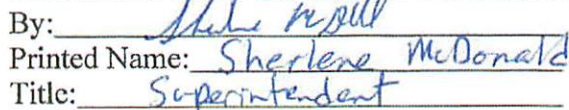 By:
Printed Name: Sherlene McDonald
Title: Superintendent